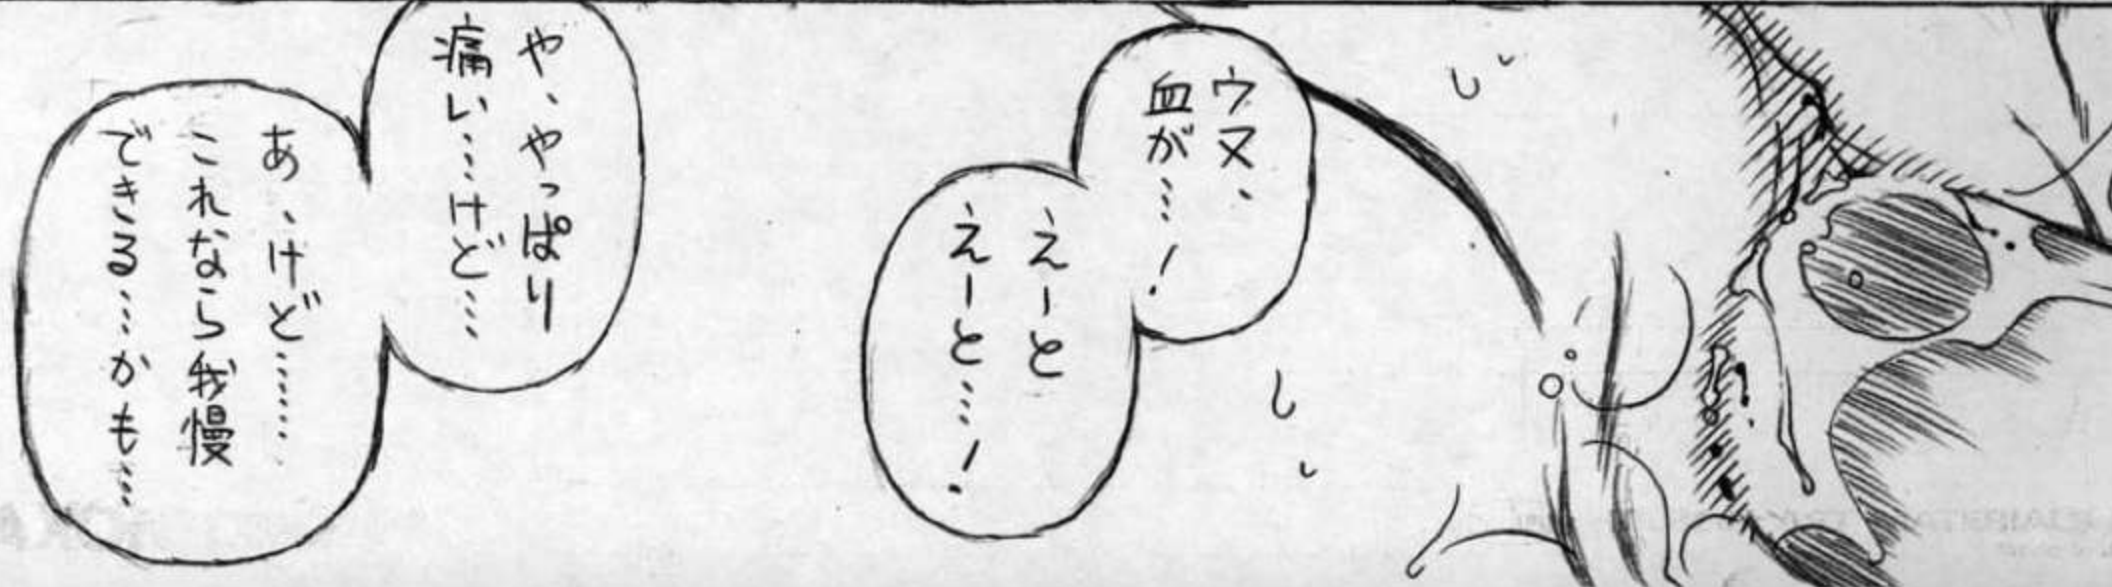 ウヌ、
血が…!
えーと
えーと…!
や、やっぱり
痛い…けど…
あ、けど……
これなら我慢
できる…かも…